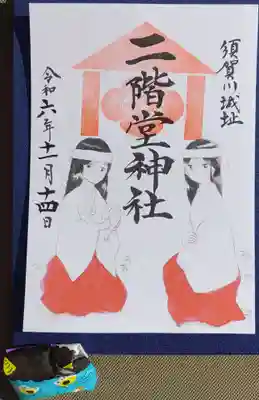 須賀川城址
二階堂神社
令和六年十一月十四日